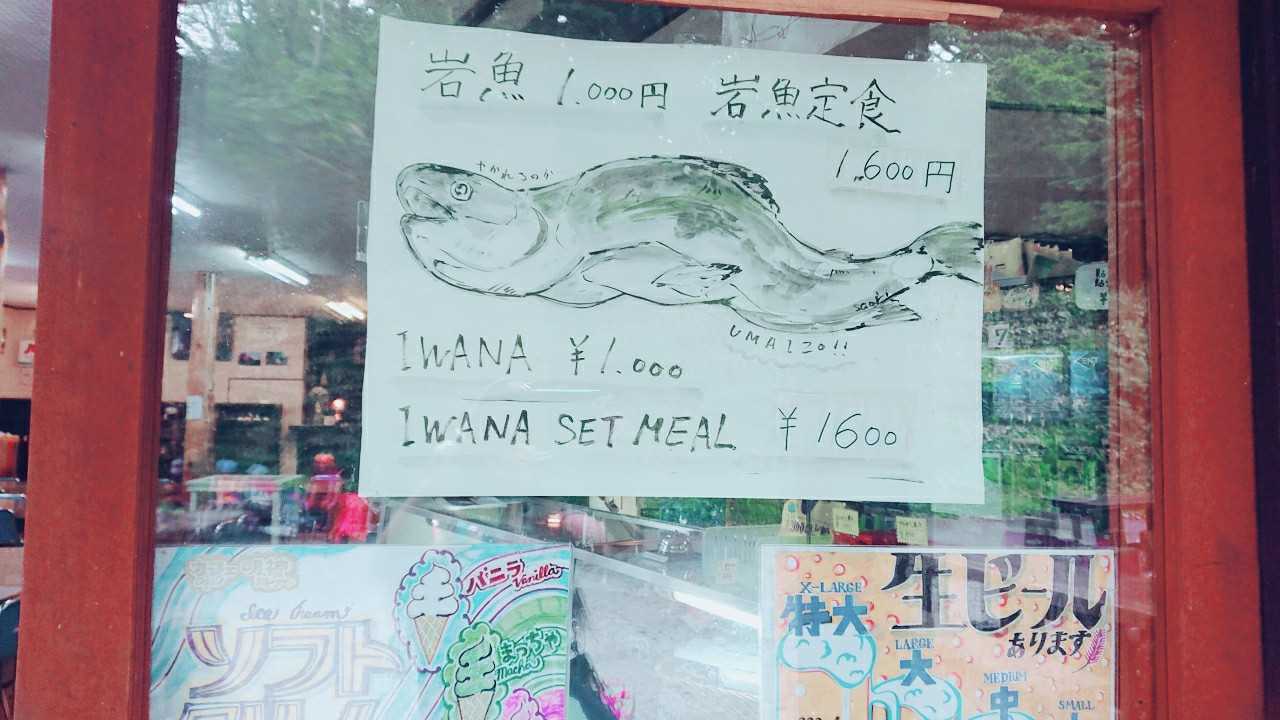 岩魚 1.000円 岩魚定食
1.600円
やかれるのか
UMAIZO!!
IWANA ¥1.000
IWANA SET MEAL ¥1600
Ice Cream
バニラ
Vanilla
ソフト
まっちゃ
Macha
生ビール
あります
X-LARGE
特大
LARGE
大
MEDIUM
中
SMALL